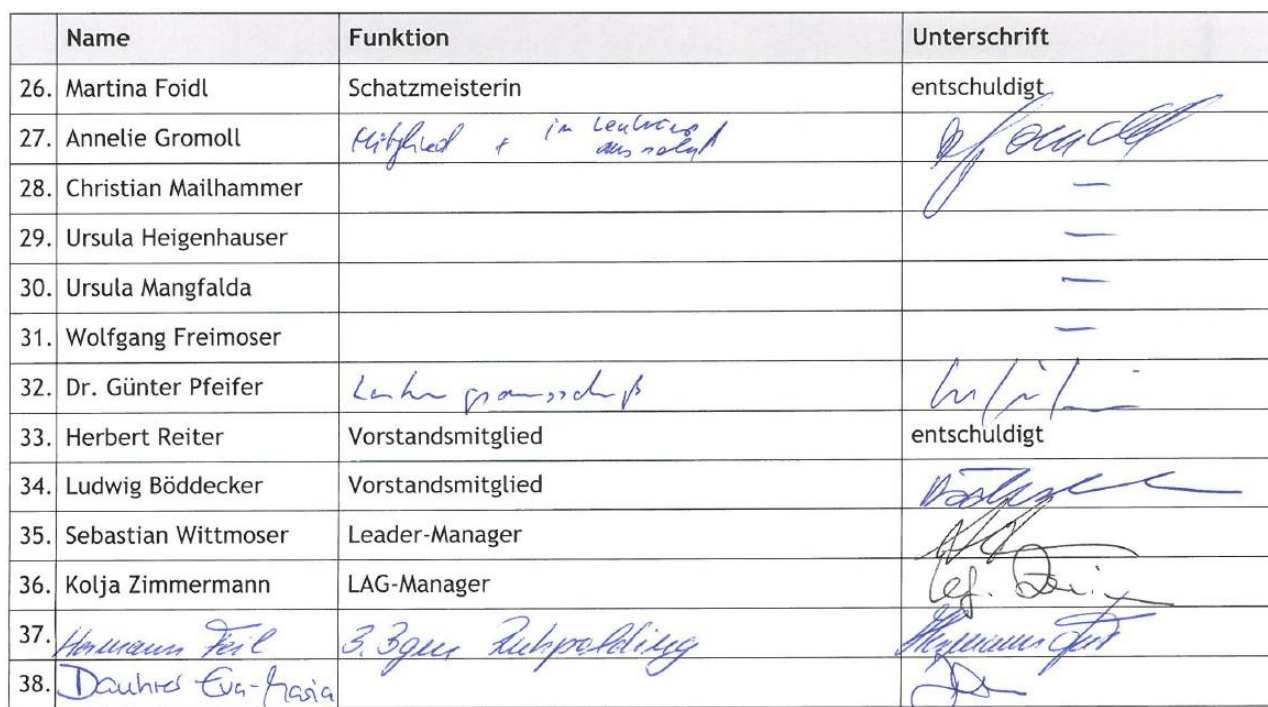 Name Funktion Unterschrift
26. Martina Foidl Schatzmeisterin entschuldigt
27. Annelie Gromoll Mitglied + im
28. Christian Mailhammer —
29. Ursula Heigenhauser —
30. Ursula Mangfalda —
31. Wolfgang Freimoser —
32. Dr. Günter Pfeifer
33. Herbert Reiter Vorstandsmitglied entschuldigt
34. Ludwig Böddecker Vorstandsmitglied
35. Sebastian Wittmoser Leader-Manager
36. Kolja Zimmermann LAG-Manager
37. Hermann Feil 3. Bgm Ruhpolding Hermann Feil
38. Eva-Maria